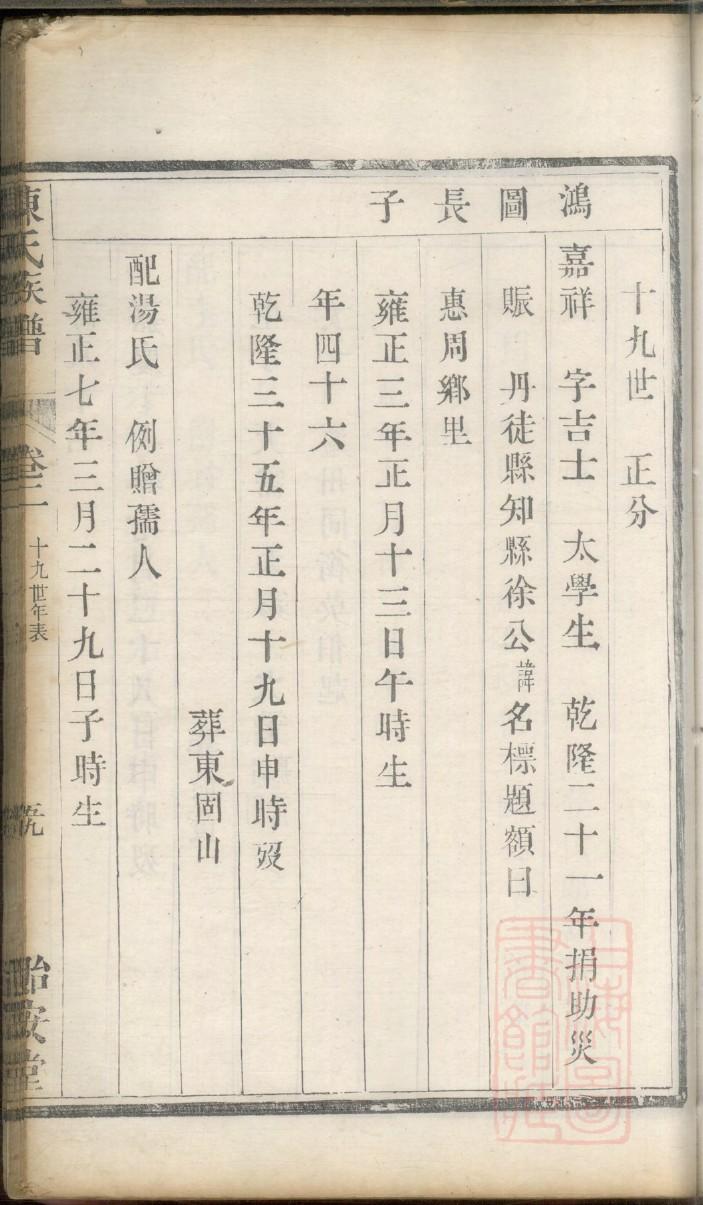 十九世　正分
鴻圖長子
嘉祥　字吉士　太學生　乾隆二十一年捐助災
賑　丹徒縣知縣徐公諱名標題額曰
惠周鄉里
雍正三年正月十三日午時生
年四十六
乾隆三十五年正月十九日申時歿
葬東固山
配湯氏　例贈孺人
雍正七年三月二十九日子時生
陳氏族譜　卷二　十九世年表
上海圖
書館藏